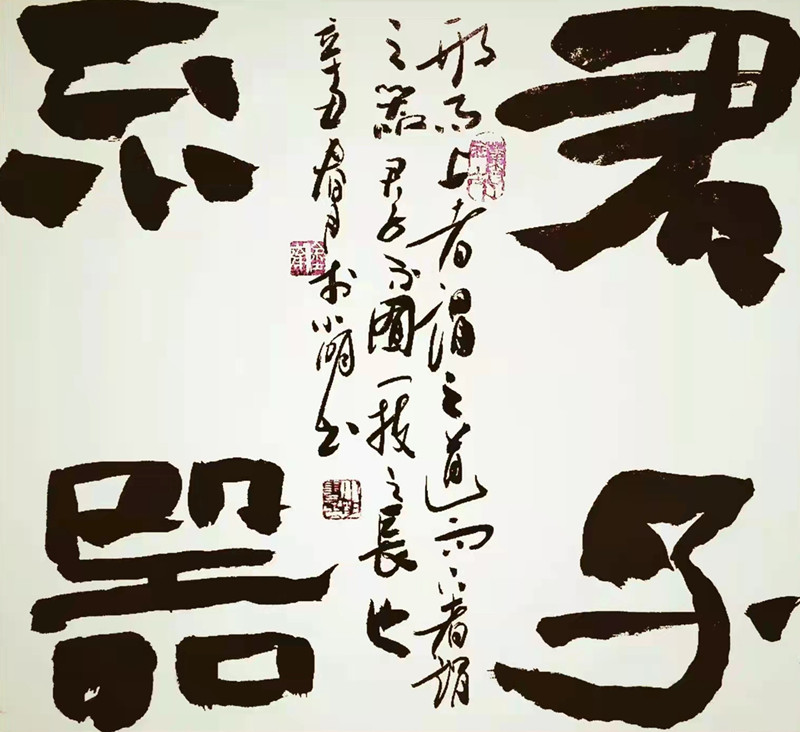 君子
形而上者謂之道而下者謂
之器君子不囿一技之長也
辛丑春月小明书
不器